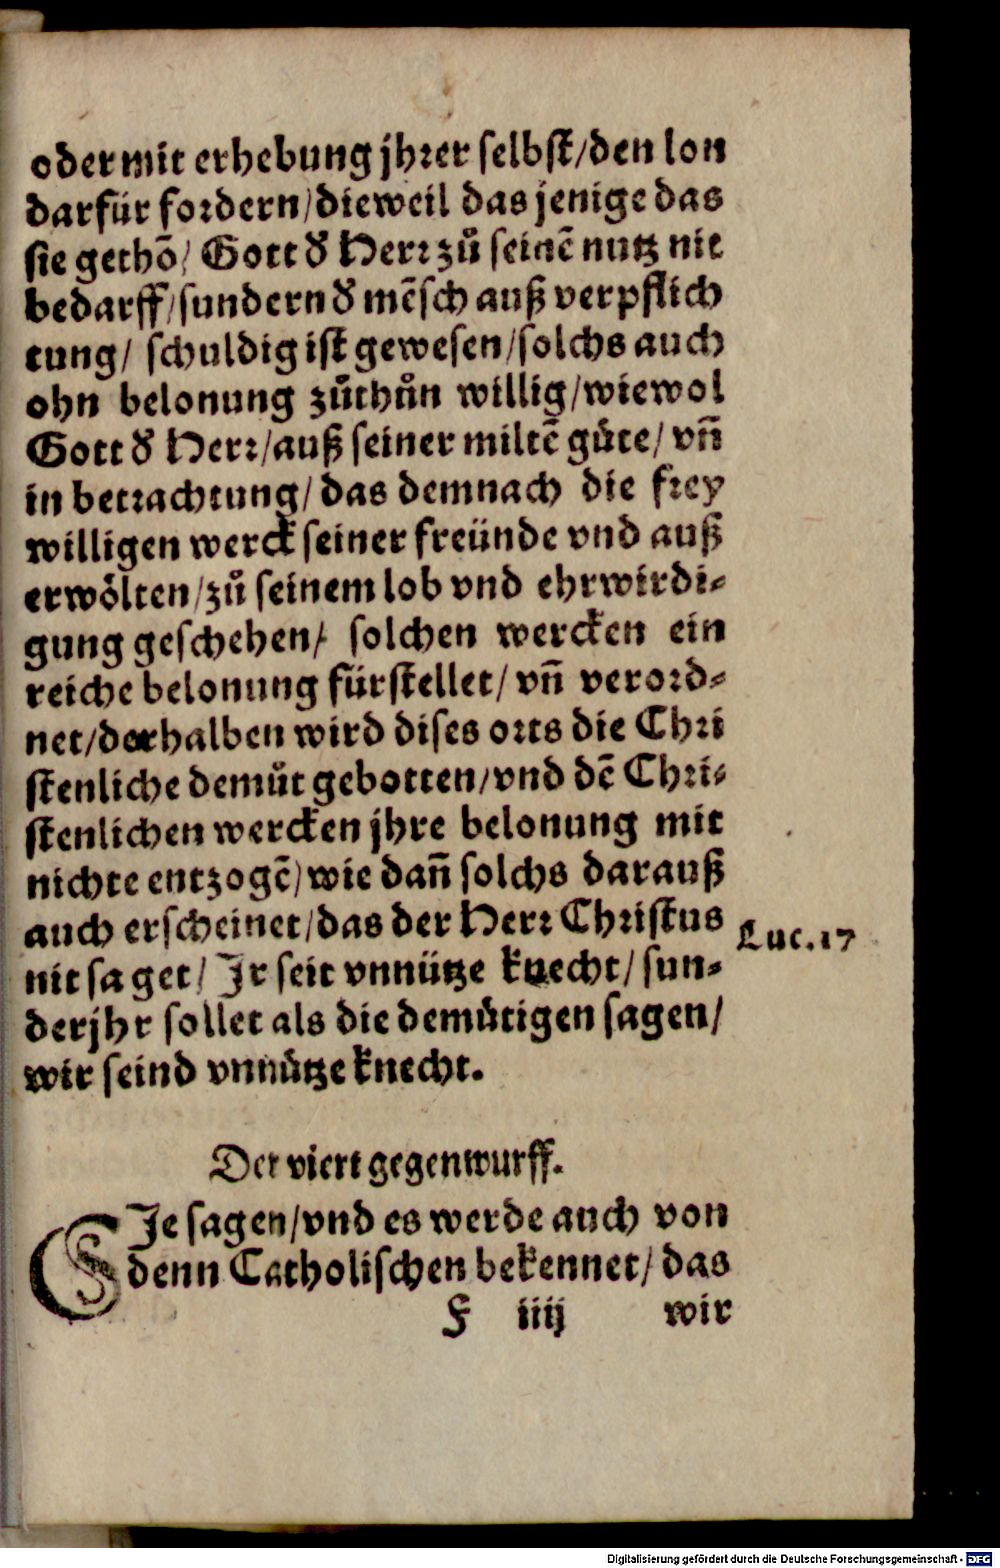 oder mit erhebung jhrer selbst/den lon
darfür fordern/dieweil das jenige das
sie gethõ/ Gott d̕ Herr zů seinẽ nutz nit
bedarff/sundern d̕ mẽsch auß verpflich
tung/ schuldig ist gewesen/solchs auch
ohn belonung zůthůn willig/wiewol
Gott d̕ Herr/auß seiner miltẽ gůte/ vñ
in betrachtung/ das demnach die frey
willigen werck seiner freünde vnd auß
erwölten/zů seinem lob vnd ehrwirdi-
gung geschehen/ solchen wercken ein
reiche belonung fürstellet/ vñ verord-
net/derhalben wird dises orts die Chri
stenliche demůt gebotten/vnd dẽ Chri-
stenlichen wercken jhre belonung mit
nichte entzogẽ/wie dañ solchs darauß
auch erscheinet/das der Herr Christus
Luc.17
nit saget/ Jr seit vnnütze knecht/ sun-
der jhr sollet als die demůtigen sagen/
wir seind vnnůtze knecht.
Der viert gegenwurff.
SJe sagen/vnd es werde auch von
denn Catholischen bekennet/ das
F iiij wir
Digitalisierung gefördert durch die Deutsche Forschungsgemeinschaft - DFG